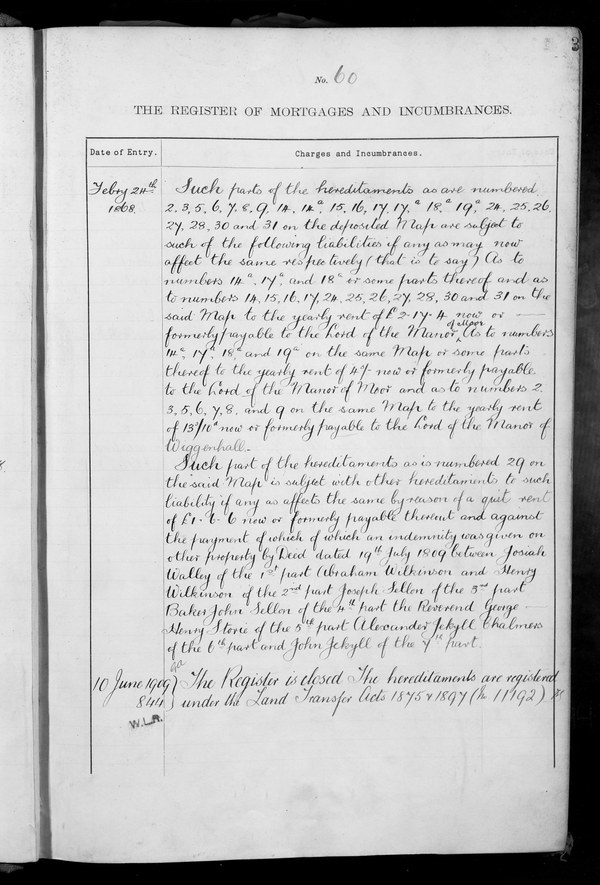 3
No. 60
THE REGISTER OF MORTGAGES AND INCUMBRANCES.
Date of Entry.
Charges and Incumbrances.
Febry 24th
1868.
Such parts of the hereditaments as are numbered
2, 3, 5, 6, 7, 8, 9, 14, 14a, 15, 16, 17, 17a, 18a, 19a, 24, 25, 26,
27, 28, 30 and 31 on the deposited Map are subject to
such of the following liabilities if any as may now
affect the same respectively (that is to say) As to
numbers 14a, 17a, and 18a or some parts thereof and as
to numbers 14, 15, 16, 17, 24, 25, 26, 27, 28, 30 and 31 on the
said Map to the yearly rent of £2.17.4 now or
formerly payable to the Lord of the Manor of Moor As to numbers
14a, 17a, 18a and 19a on the same Map or some parts
thereof to the yearly rent of 4/- now or formerly payable
to the Lord of the Manor of Moor and as to numbers 2
3, 5, 6, 7, 8, and 9 on the same Map to the yearly rent
of 13/10d now or formerly payable to the Lord of the Manor of
Wiggenhall.
Such part of the hereditaments as is numbered 29 on
the said Map is subject with other hereditaments to such
liability if any as affects the same by reason of a quit rent
of £1.6.6 now or formerly payable thereout and against
the payment of which of which an indemnity was given on
other property by Deed dated 19th July 1809 between Josiah
Walley of the 1st part Abraham Wilkinson and Henry
Wilkinson of the 2nd part Joseph Sellon of the 3rd part
Baker John Sellon of the 4th part the Reverend George
Henry Storie of the 5th part Alexander Jekyll Chalmers
of the 6th part and John Jekyll of the 7th part.
10 June 1909
844
W.L.R.
The Register is closed The hereditaments are registered
under the Land Transfer Acts 1875 & 1897 (No 11192)